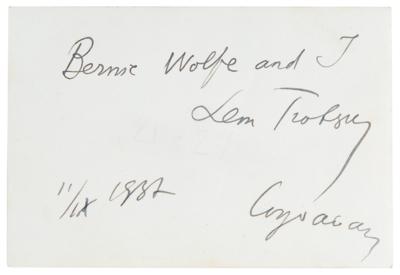 Bernie Wolfe and I
Leon Trotsky
11/IX 1937
Coyoacan